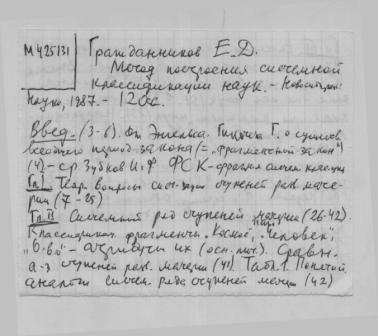 М 425131
Гражданников Е.Д.
Метод построения системной
классификации наук. - Новосибирск:
Наука, 1987. - 120 с.
Введ. (3-6). Г. о
всеобщего период. закона (= "фрагментный закон")
(4) - ср. Зубков И.Ф ФСК - фрагм систем классиф
Гл I. Теор. вопросы сист-зации ступеней разв. мате-
рии (7-25)
Гл II Системный ряд ступеней материи (26-42).
Классификац. фрагменты "Космос", "Человек",
"О-во" - атрибуты их (осн. пон.). Сравн.
а-з ступеней разв. материи (41). Табл. 1. Понятий,
аналоги систем. ряда ступеней матер (42)